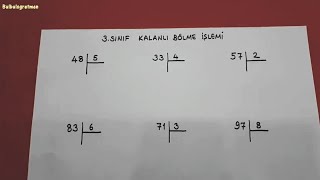 Balbalogretmen
3.SINIF KALANLI BÖLME İŞLEMİ
48 5 33 4 57 2
83 6 71 3 97 8